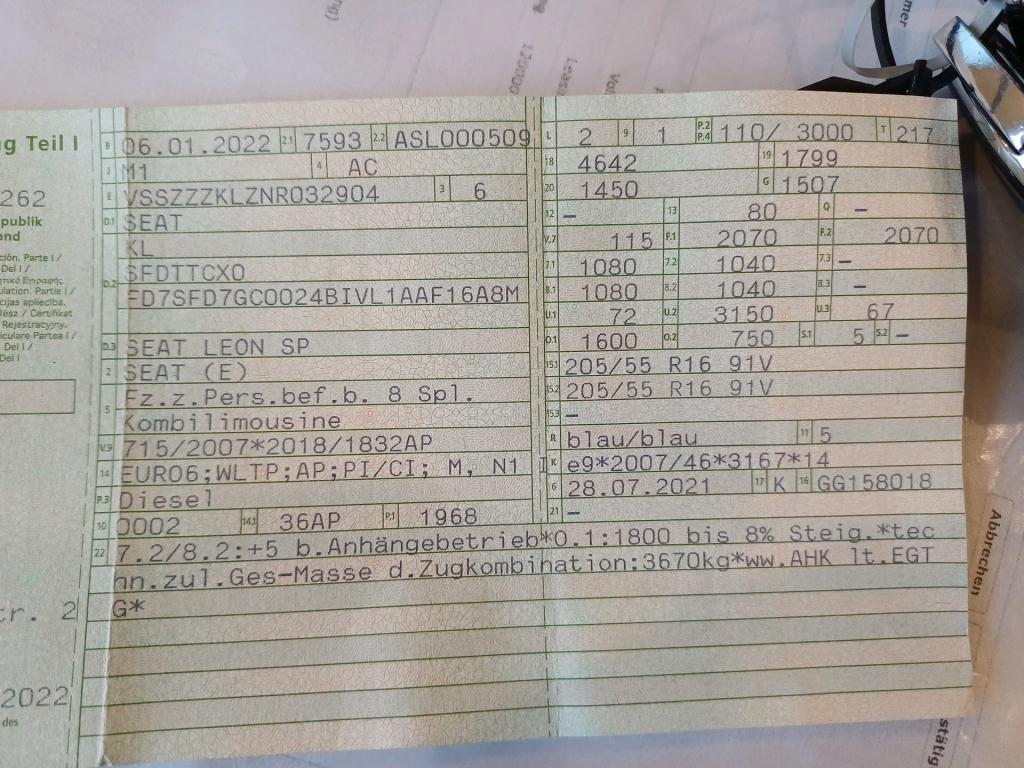 ng Teil I
262
publik
and
ción. Parte I /
Del I /
ulation. Partie I /
cijas apliecība.
Rész / Certifikat
Rejestracyjny.
iculare Partea I /
Del I /
Del I
tr. 2
2022
des
B 06.01.2022 2.1 7593 2.2 ASL000509
J M1 4 AC
E VSSZZZKLZNR032904 3 6
D.1 SEAT
KL
D.2 SFDTTCX0
FD7SFD7GC0024BIVL1AAF16A8M
D.3 SEAT LEON SP
2 SEAT (E)
5 Fz.z.Pers.bef.b. 8 Spl.
Kombilimousine
V.9 715/2007*2018/1832AP
14 EURO6;WLTP;AP;PI/CI; M, N1 I
P.3 Diesel
10 0002 14.1 36AP P.1 1968
L 2 9 1 P.2 P.4 110/ 3000 T 217
18 4642 19 1799
20 1450 G 1507
12 – 13 80 Q –
V.7 115 F.1 2070 F.2 2070
7.1 1080 7.2 1040 7.3 –
8.1 1080 8.2 1040 8.3 –
U.1 72 U.2 3150 U.3 67
O.1 1600 O.2 750 S.1 5 S.2 –
15.1 205/55 R16 91V
15.2 205/55 R16 91V
15.3 –
R blau/blau 11 5
K e9*2007/46*3167*14
6 28.07.2021 17 K 16 GG158018
21 –
22 7.2/8.2:+5 b.Anhängebetrieb*O.1:1800 bis 8% Steig.*tec
hn.zul.Ges-Masse d.Zugkombination:3670kg*ww.AHK lt.EGT
G*
Abbrechen
stätig